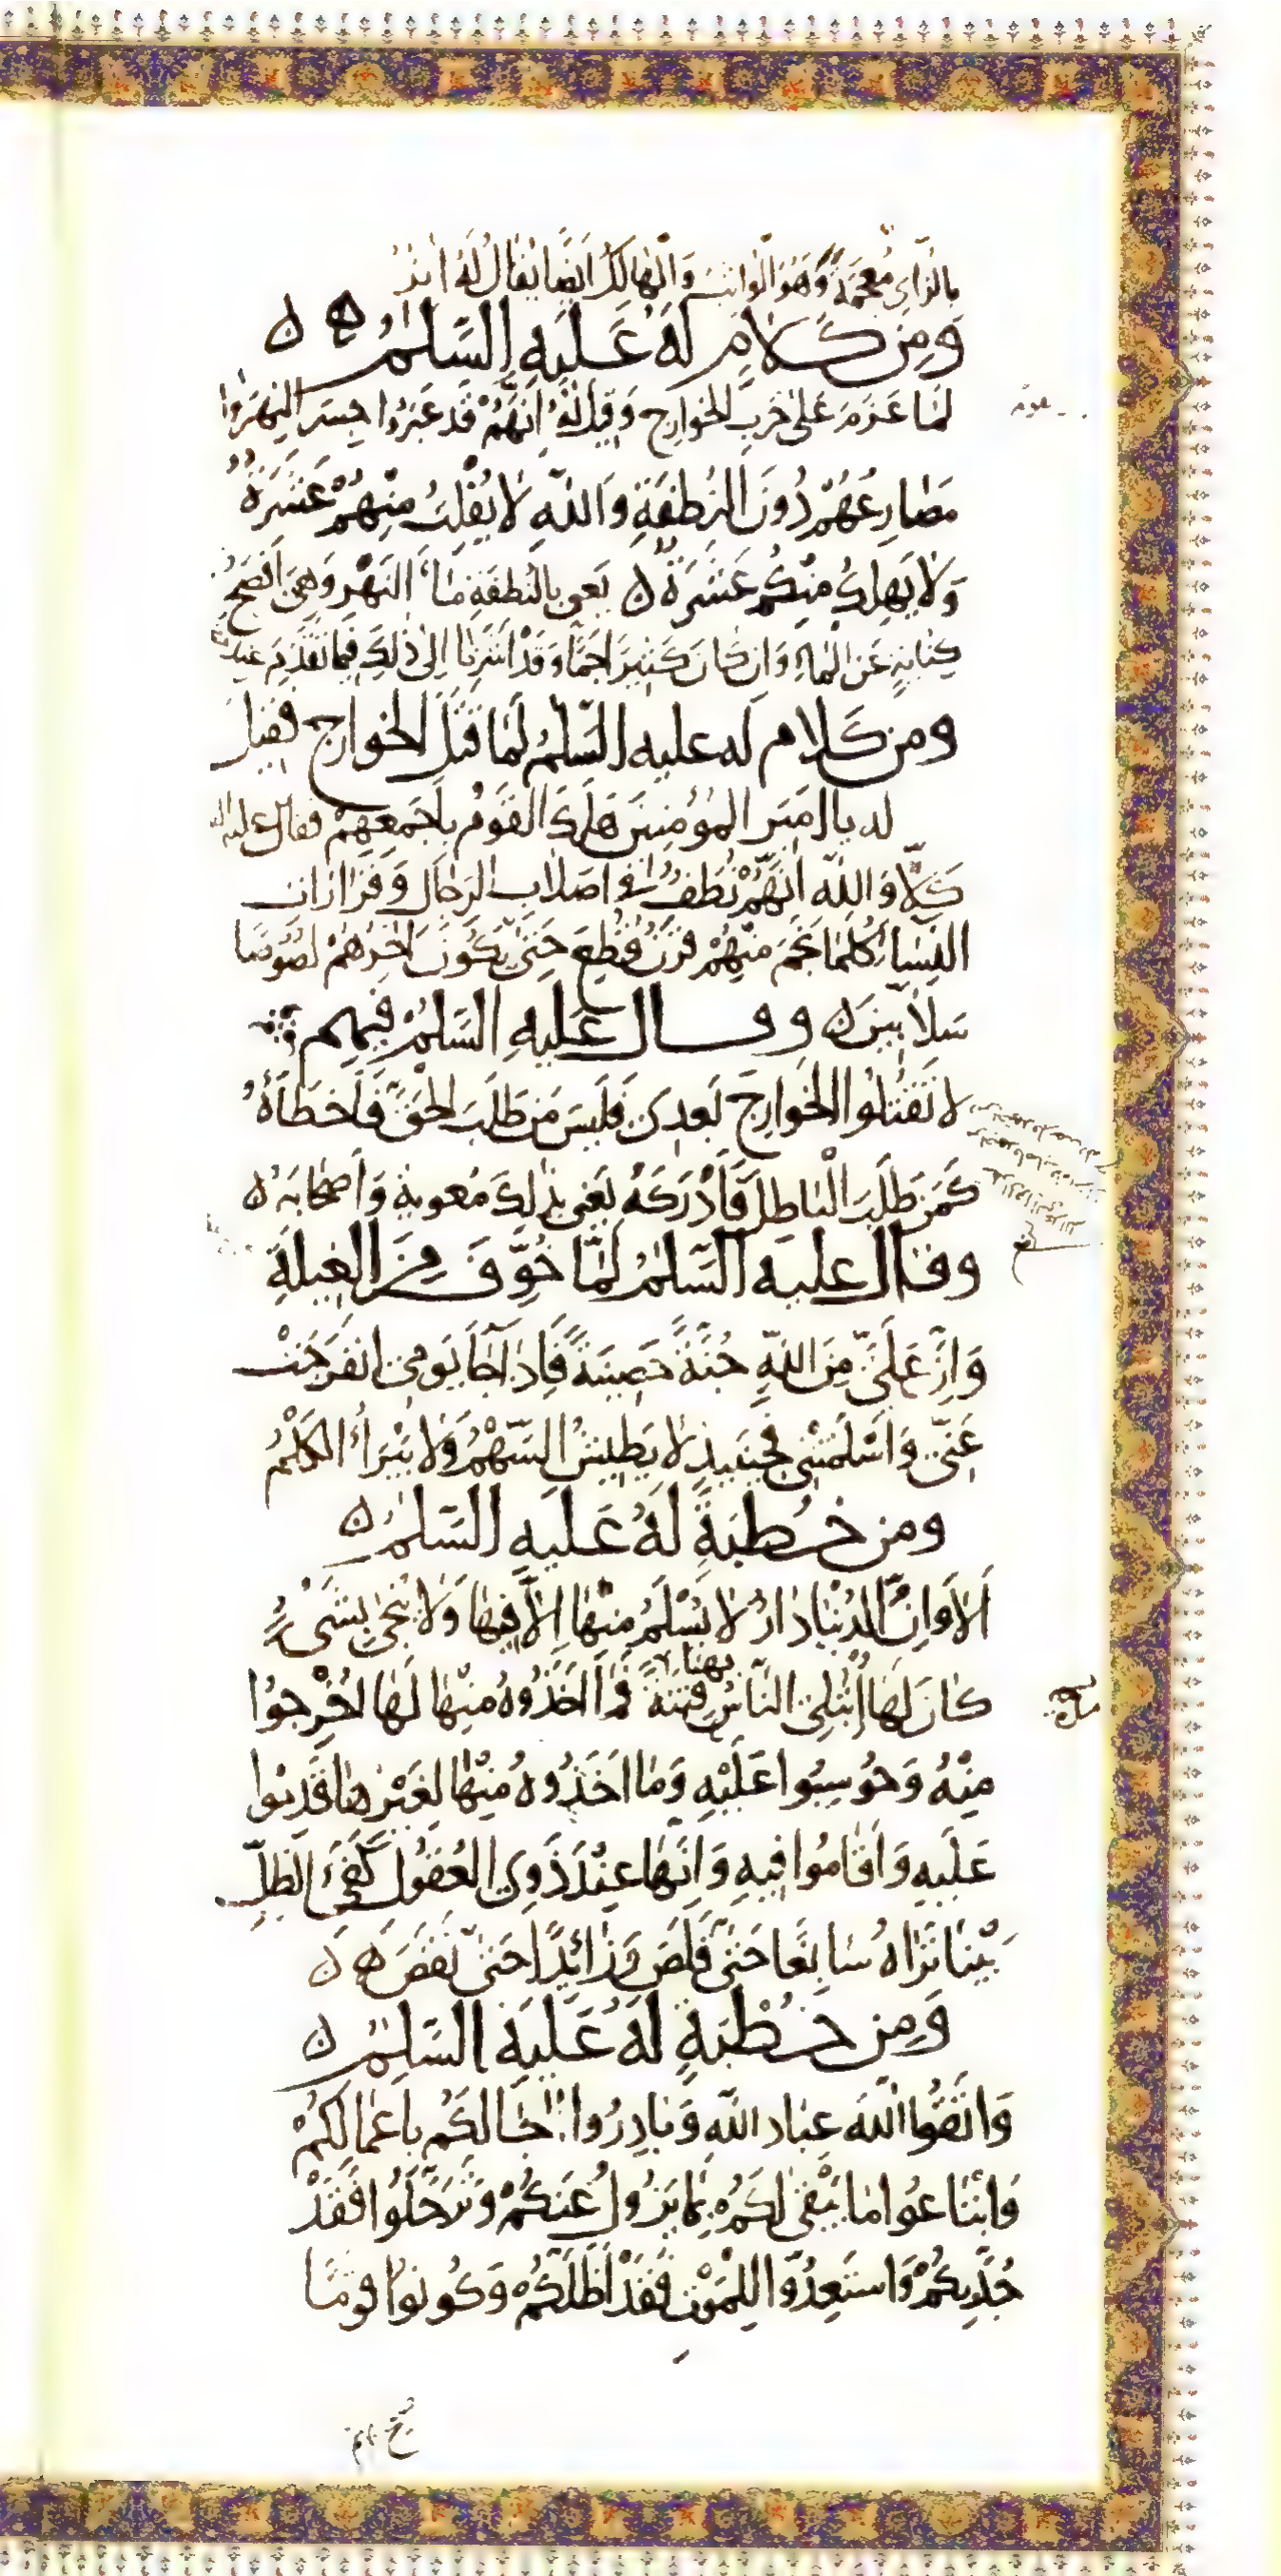 بالزاي معجمة وهو الواثب والهالك ايضا يقال له ابز
وَمِن كَلامٍ لَهُ عَلَيهِ السَّلٰمُ ه ن
لمّا عَزَمَ عَلىٰ حَربِ الخوارِج وَقيلَ لَهُ اِنَّهُمْ قَد عَبَرُوا جِسرَ النهرَوان
مَصَارِعُهُمْ دُونَ النُطفَةِ وَاللهِ لا يُفْلِتُ مِنهُمْ عَشَرَةٌ
وَلا يَهلِكُ مِنكُم عَشَرَةٌ ن يَعنى بالنُطفَةِ مَاءَ النَهْرِ وَهِىَ اَفصَحُ
كِنايةٍ عَنِ المَاءِ وَاِن كانَ كَثِيراً جَمًّا وَقَدْ اَشَرنا اِلى ذٰلِكَ فيما تَقَدَّمَ عند
ومن كَلام له عليه السَّلٰمُ لَمّا قتلَ الخوارج فقيل
له يا امِيرَ المُؤمِنينَ هَلَكَ القَومُ بِاَجمَعِهِمْ فقال عليه
كَلّا وَاللهِ اِنَّهُمْ نُطَفٌ فى اَصلابِ الرِجالِ وَقَراراتِ
النِساءِ كُلَّما نَجَمَ مِنهُمْ قَرْنٌ قُطِعَ حَتىّٰ يَكُونَ آخِرُهُمْ لُصُوصًا
سَلّابينَ ن وقال عَلَيهِ السَّلٰمُ فيهِم
لا تَقتُلُوا الخَوارِجَ بَعدِى فَلَيسَ مَن طَلَبَ الحَقَّ فَاَخطَأَهُ
كَمَن طَلَبَ البٰاطِلَ فَاَدْرَكَهُ يَعنى بِذٰلِكَ مُعوية وَاَصحابَهُ ن
وقال عليه السَّلٰمُ لَمّا خُوِّفَ مِنَ الغِيلَةِ
وَاِنَّ عَلَىَّ مِنَ اللهِ جُنَّةً حَصِينَةً فَاِذا جَاءَ يَومِى انفَرَجَتْ
عَنّى وَاَسْلَمَتْنى فَحِينَئِذٍ لا يَطِيشُ السَّهْمُ وَلا يَبْرَأُ الكَلْمُ
ومن خُطبَةٍ لَهُ عَلَيهِ السَّلٰمُ ن
اَلا وَاِنَّ الدُنْيا دارٌ لا يُسْلَمُ مِنهٰا اِلّا فيهٰا وَلا يُنجىٰ بِشَىْءٍ
كانَ لَهٰا اُبْتُلِىَ النّاسُ بها فِتنَةً فَما اَخَذُوهُ مِنهٰا لَهٰا اُخْرِجُوا
مِنْهُ وَحُوسِبُوا عَلَيْهِ وَمٰا اَخَذُوهُ مِنْهٰا لِغَيْرِهٰا قَدِمُوا
عَلَيهِ وَاَقامُوا فِيهِ وَاِنَّها عِنْدَ ذَوِى العُقُولِ كَفَىْءِ الظِلِّ
بَيْنا تَراهُ سابِغًا حَتىّٰ قَلَصَ وَزائِدًا حَتىّٰ نَقَصَ ه ن
وَمِن خُطْبَةٍ لَهُ عَلَيهِ السَّلٰمُ ن
وَاتَّقُوا اللهَ عِبادَ اللهِ وَبادِرُوا اٰجٰالَكُم بِاَعمَالِكُمْ
وَابْتٰاعُوا مٰا يَبْقىٰ لَكُمْ بِمٰا يَزُولُ عَنكُمْ وَتَرَحَّلُوا فَقَدْ
جُدَّبِكُمْ وَاستَعِدُّوا لِلمَوْتِ فَقَدْ اَظَلَّكُمْ وَكُونُوا قومًا